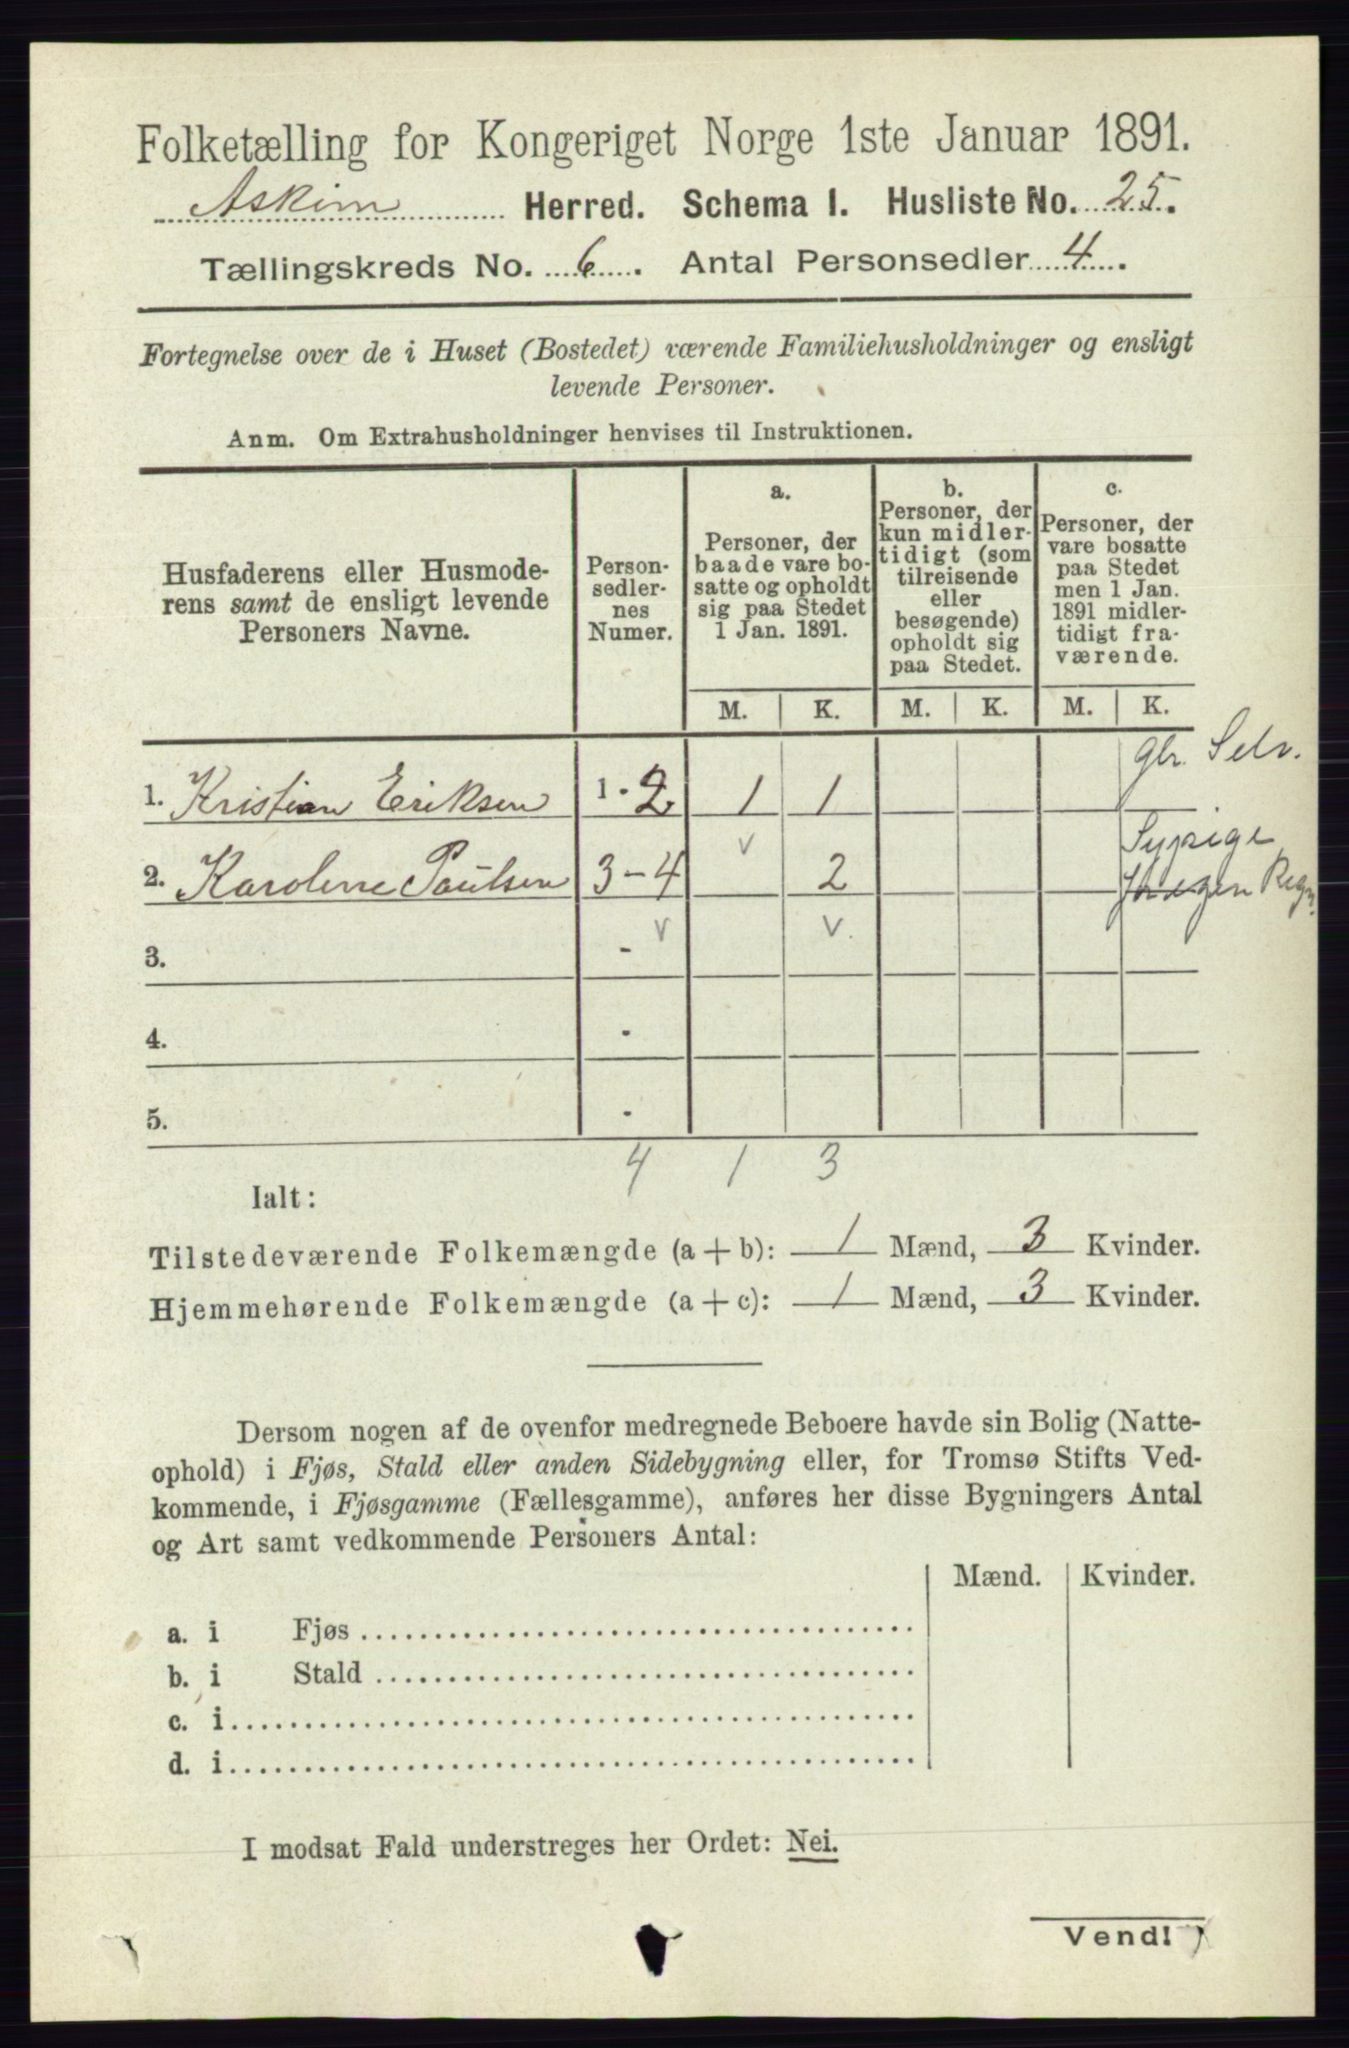 Folketælling for Kongeriget Norge 1ste Januar 1891.
Askim Herred. Schema I. Husliste No. 25.
Tællingskreds No. 6. Antal Personsedler 4.
Fortegnelse over de i Huset (Bostedet) værende Familiehusholdninger og ensligt
levende Personer.
Anm. Om Extrahusholdninger henvises til Instruktionen.
Husfaderens eller Husmode-
rens samt de ensligt levende
Personers Navne.
Person-
sedler-
nes
Numer.
a.
Personer, der
baade vare bo-
satte og opholdt
sig paa Stedet
1 Jan. 1891.
b.
Personer, der
kun midler-
tidigt (som
tilreisende
eller
besøgende)
opholdt sig
paa Stedet.
c.
Personer, der
vare bosatte
paa Stedet
men 1 Jan.
1891 midler-
tidigt fra-
værende.
M. K. M. K. M. K.
gbr. Selv.
1. Kristian Eriksen 1 - 2 1 1
v Sypige
2. Karoline Paulsen 3 - 4 2 egen Regn.
v v.
3. -
4. -
5. -
4 1 3
Ialt:
Tilstedeværende Folkemængde (a + b): 1 Mænd, 3 Kvinder.
Hjemmehørende Folkemængde (a + c): 1 Mænd, 3 Kvinder.
Dersom nogen af de ovenfor medregnede Beboere havde sin Bolig (Natte-
ophold) i Fjøs, Stald eller anden Sidebygning eller, for Tromsø Stifts Ved-
kommende, i Fjøsgamme (Fællesgamme), anføres her disse Bygningers Antal
og Art samt vedkommende Personers Antal:
Mænd. Kvinder.
a. i Fjøs
b. i Stald
c. i
d. i
I modsat Fald understreges her Ordet: Nei.
Vend!